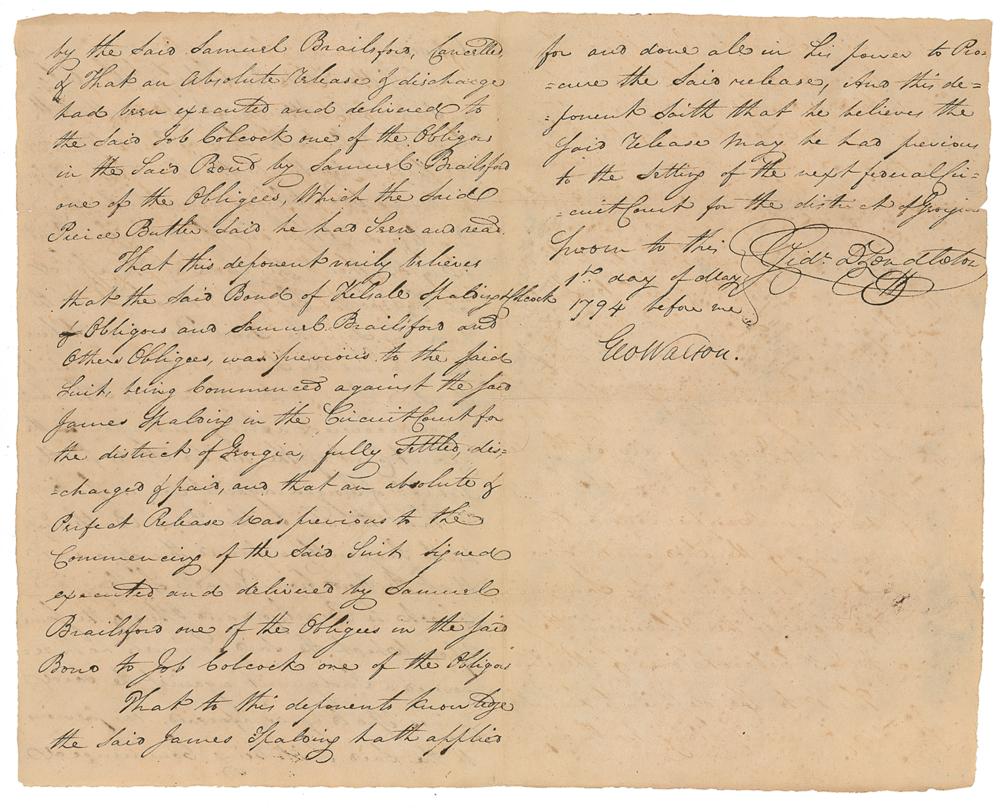 by the Said Samuel Brailsford, Cancelled,
& That an Absolute Release & discharge
had been executed and delivered to
the Said Job Colcock one of the Obligors
in the Said Bond by Samuel Brailsford
one of the Obligees, Which the Said
Peirce Butler Said he had Seen and read
That this deponent verily believes
that the Said Bond of Kelsall Spalding & Colcock
Obligors and Samuel Brailsford and
Others Obligees, was previous to the Said
Suit, being Commenced against the Said
James Spalding in the Circuit Court for
the district of Georgia, fully Settled, dis=
=charged & paid, and that an absolute &
Perfect Release Was previous to the
Commencing of the Said Suit signed
executed and delivered by Samuel
Brailsford one of the Obligees in the Said
Bond to Job Colcock one of the Obligors
That to this deponents knowledge
the Said James Spalding hath applied
for and done all in his power to Pro=
=cure the Said release, And this de=
=ponent Saith that he believes the
Said Release May be had previous
to the Setting of the next federal Cir=
=cuit Court for the district of Georgia
Sworn to this
1st day of May
1794 before me
Geo Walton.
Nathl Pendleton